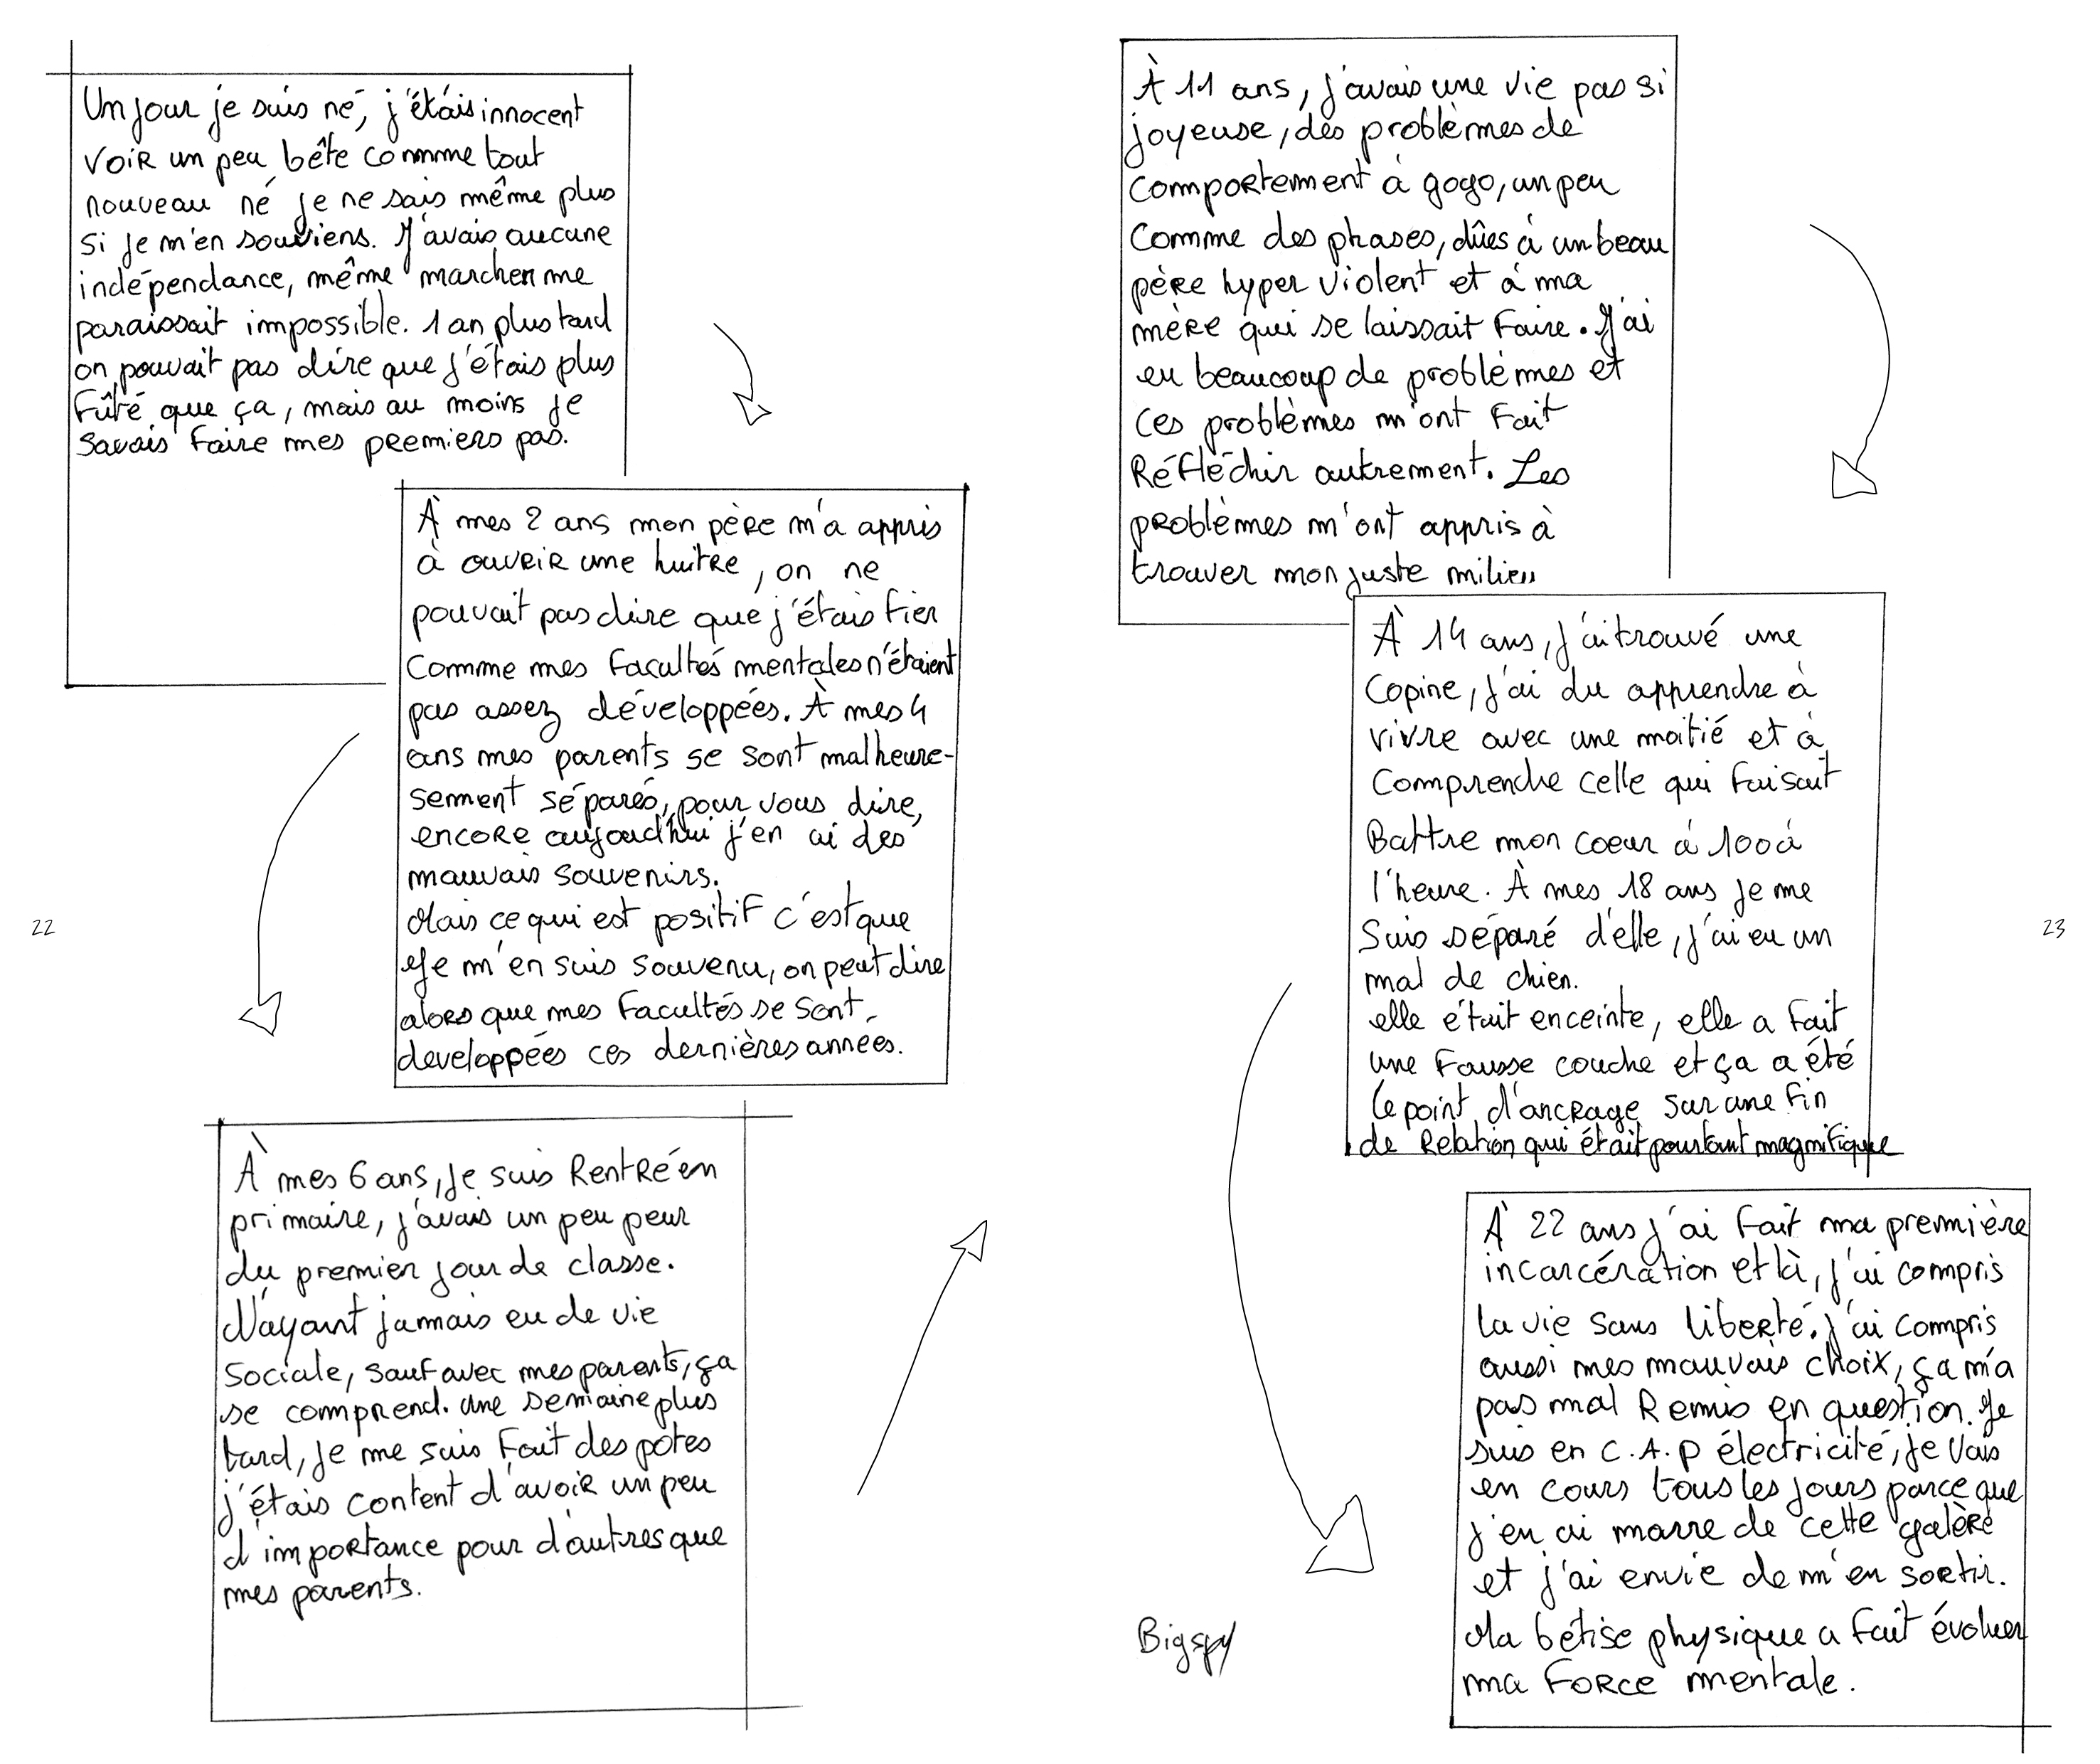 Un jour je suis né, j'étáis innocent
voir un peu bête commme tout
nouveau né je ne sais même plus
si je m'en souviens. J'avais aucune
indépendance, même marcher me
paraissait impossible. 1 an plus tard
on pouvait pas dire que j'étais plus
fûté que ça, mais au moins je
savais faire mes premiers pas.
À mes 2 ans mon père m'a appris
à ouvrir une huitre, on ne
pouvait pas dire que j'étais fier
comme mes facultés mentales n'étaient
pas assez développées. À mes 4
ans mes parents se sont malheure-
sement séparés, pour vous dire,
encore aujourd'hui j'en ai des
mauvais souvenirs.
Mais ce qui est positif c'est que
Je m'en suis souvenu, on peut dire
alors que mes facultés se sont
developpées ces dernières années.
22
À mes 6 ans, je suis Rentré en
primaire, j'avais un peu peur
du premier jour de classe.
N'ayant jamais eu de vie
sociale, sauf avec mes parents, ça
se comprend. une semaine plus
tard, je me suis fait des potes
j'étais content d'avoir un peu
d'importance pour d'autres que
mes parents.
À 11 ans, j'avais une vie pas si
joyeuse, des problèmes de
comportement à gogo, un peu
comme des phases, dûes à un beau
père hyper violent et à ma
mère qui se laissait faire. J'ai
eu beaucoup de problèmes et
ces problèmes m'ont fait
Réfléchir autrement. Les
problèmes m'ont appris à
trouver mon juste milieu
À 14 ans, j'ai trouvé une
copine, j'ai du apprendre à
vivre avec une moitié et à
comprendre celle qui faisait
Battre mon coeur à 100 à
l'heure. À mes 18 ans je me
suis séparé d'elle, j'ai eu un
mal de chien.
elle était enceinte, elle a fait
une fausse couche et ça a été
le point d'ancrage sur une fin
de Relation qui était pourtant magnifique
23
À 22 ans j'ai fait ma première
incarcération et là, j'ai compris
la vie sans liberté. j'ai compris
aussi mes mauvais choix, ça m'a
pas mal Remis en question. Je
suis en C.A.P électricité, je vais
en cours tous les jours parce que
j'en ai marre de cette galère
et j'ai envie de m'en sortir.
Ma bêtise physique a fait évoluer
ma force mentale.
Bigspy